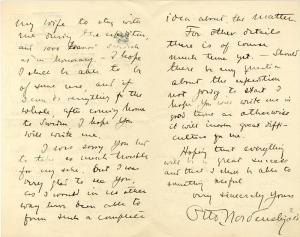 my wife to stay with
me during the expedition,
and 1000
as an honorary - I hope
I shall be able to be
of some use, and if
I can do anything for the
whole, after coming home
to Sweden I hope you
will write me.
I was sorry you had
to take so much trouble
for my sake, but I was
very glad to see you,
as I would in no other
way have been able to
form such a complete
idea about the matter.
For other details
there is of course
much time yet. - Should
there be any question
about the expedition
not going to start I
hope you will write me in
good time as otherwise
it will mean great diffi-
culties for me.
Hoping that everything
will be a great success
and that I shall be able to
something useful
very sincerely yours
Otto Nordenskjöld